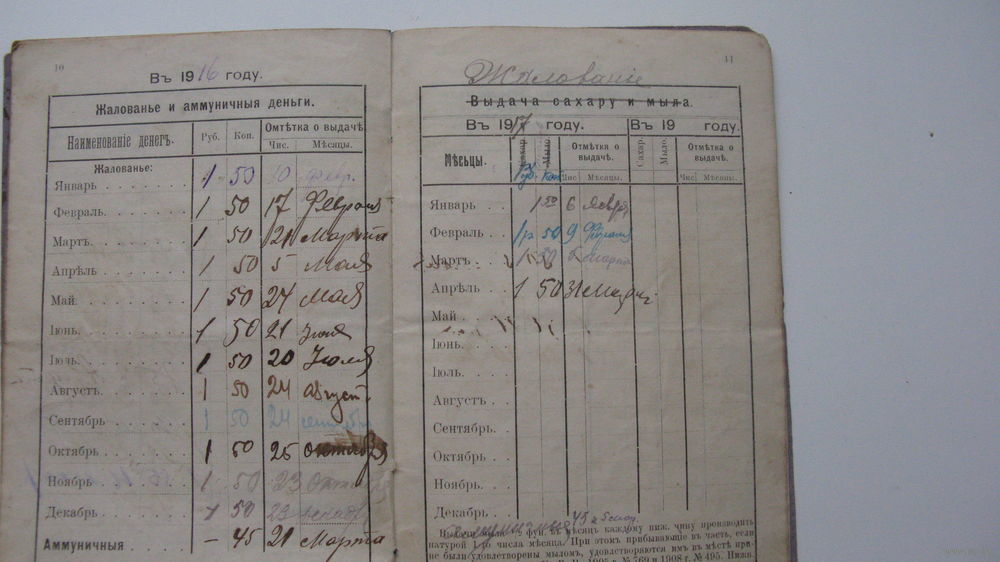 10
Въ 1916 году.
Жалованье и аммуничныя деньги.
Наименованіе денегъ. Руб. Коп. Отмѣтка о выдачѣ.
Чис. Мѣсяцы.
Жалованье:
Январь 1 50 10
Февраль. 1 50 17 Февраля
Мартъ. 1 50 21 Марта
Апрѣль 1 50 5 Мая
Май. 1 50 24 Мая
Іюнь 1 50 21 Іюня
Іюль 1 50 20 Іюля
Августъ 1 50 24 Август.
Сентябрь 1 50 24 сентября
Октябрь 1 50 25 октября
Ноябрь 1 50 23
Декабрь 1 50 23
Аммуничныя – 45 21 Марта
11
Жалованіе
Выдача сахару и мыла.
Въ 1917 году. Въ 19 году.
Мѣсяцы. Сахар. Мыло. Отмѣтка о выдачѣ. Сахар. Мыло. Отмѣтка о выдачѣ.
Руб. Коп. Чис Мѣсяцы. Чис. Мѣсяцы.
Январь 1 50 6
Февраль 1р 50 9 Февраля
Мартъ 1 50 Марта
Апрѣль 1 50
Май
Іюнь.
Іюль.
Августъ
Сентябрь.
Октябрь.
Ноябрь.
Декабрь. 45
фун. въ мѣсяцъ каждому ниж. чину производить
натурой 1-го числа мѣсяца. При этомъ прибывающіе въ часть, если
не были удовлетворены мыломъ, удовлетворяются имъ въ мѣстѣ при-
1905 г. № 769 и 1908 г. № 495. Ниж.